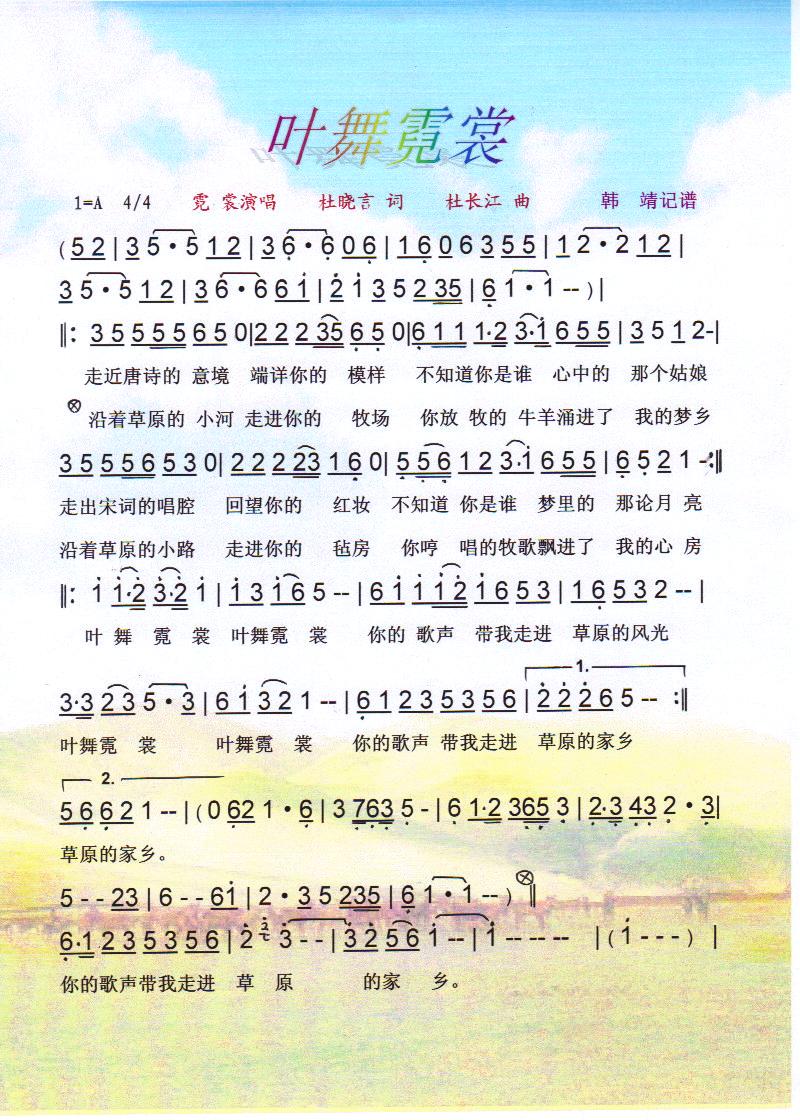 叶舞霓裳
1=A 4/4 霓 裳演唱 杜晓言 词 杜长江 曲 韩 靖记谱
(5 2 | 3 5·5 1 2 | 3 6·6 0 6 | 1 6 0 6 3 5 5 | 1 2·2 1 2 |
3 5·5 1 2 | 3 6·6 6 1 | 2 1 3 5 2 35 | 6 1·1 -- ) |
‖: 3 5 5 5 5 6 5 0 | 2 2 2 35 6 5 0 | 6 1 1 1·2 3·1 6 5 5 | 3 5 1 2- |
走近唐诗的 意境 端详你的 模样 不知道你是谁 心中的 那个姑娘
沿着草原的 小河 走进你的 牧场 你放 牧的 牛羊涌进了 我的梦乡
3 5 5 5 6 5 3 0 | 2 2 2 23 1 6 0 | 5 5 6 1 2 3·1 6 5 5 | 6 5 2 1 - :‖
走出宋词的唱腔 回望你的 红妆 不知道 你是谁 梦里的 那论月 亮
沿着草原的小路 走进你的 毡房 你哼 唱的牧歌飘进了 我的心 房
‖: 1 1·2 3·2 1 | 1 3 1 6 5 -- | 6 1 1 1 2 1 6 5 3 | 1 6 5 3 2 -- |
叶 舞 霓 裳 叶舞霓 裳 你的 歌声 带我走进 草原的风光
1.
3·3 2 3 5·3 | 6 1 3 2 1 -- | 6 1 2 3 5 3 5 6 | 2 2 2 6 5 -- :‖
叶舞霓 裳 叶舞霓 裳 你的歌声 带我走进 草原的家乡
2.
5 6 6 2 1 -- | (0 62 1·6 | 3 763 5 - | 6 1·2 365 3 | 2·3 43 2·3 |
草原的家乡。
5 - - 23 | 6 - - 61 | 2·3 5 235 | 6 1·1 -- ) ‖
6·1 2 3 5 3 5 6 | 2 3 - - | 3 2 5 6 1 -- | 1 -- -- -- | (1 - - - ) |
你的歌声带我走进 草 原 的家 乡。